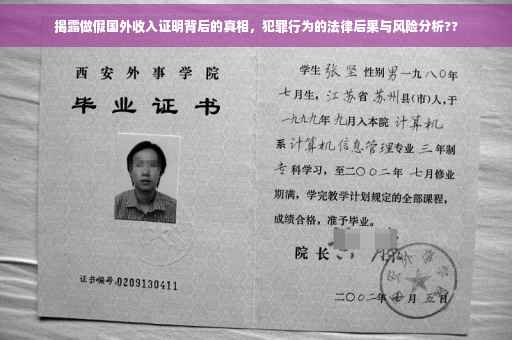 揭露做假国外收入证明背后的真相，犯罪行为的法律后果与风险分析??
西安外事学院
毕业证书
证书编号:0209130411
学生 张坚 性别男一九八〇年
七月生，江苏省苏州县(市)人,于
一九九九年九月入本院 计算机
系 计算机信息管理专业 三年制
专科学习，至二〇〇二年 七月修业
期满，学完教学计划规定的全部课程，
成绩合格，准予毕业。
院长
二〇〇二年 七月 五日